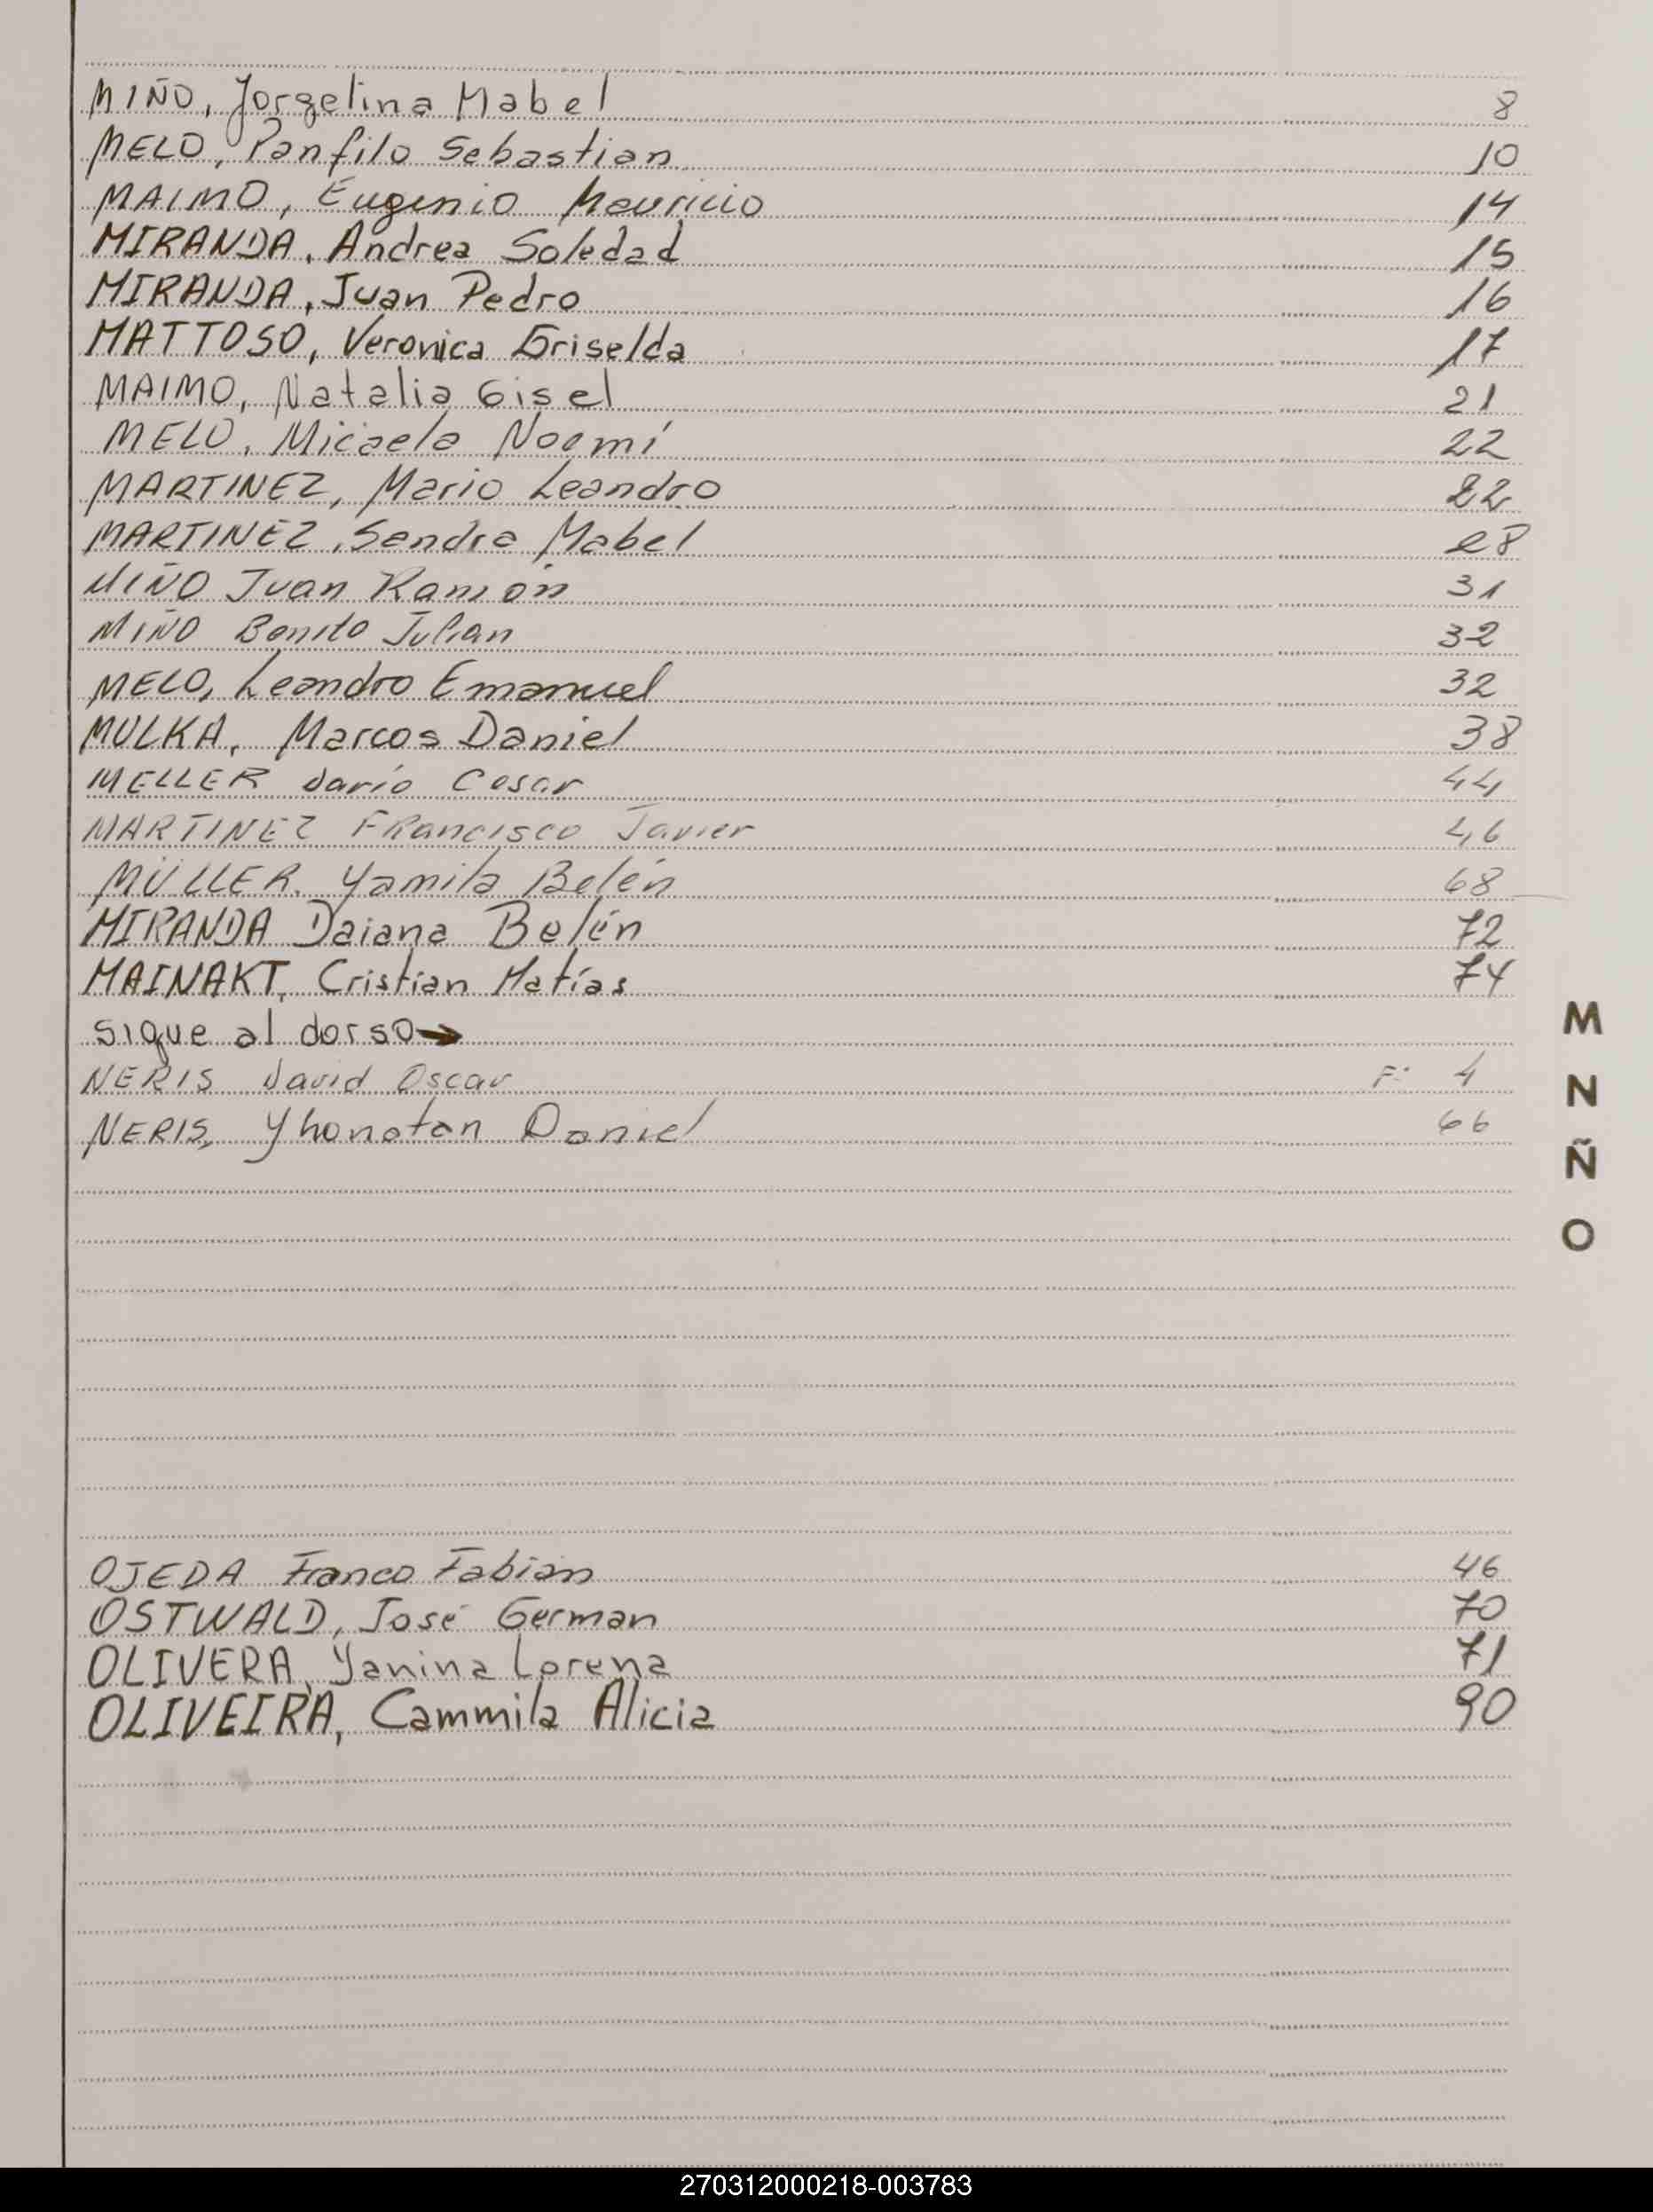 MIÑO, Jorgelina Mabel 8
MELO, Panfilo Sebastian 10
MAIMO, Eugenio Mauricio 14
MIRANDA, Andrea Soledad 15
MIRANDA, Juan Pedro 16
MATTOSO, Veronica Griselda 17
MAIMO, Natalia Gisel 21
MELO, Micaela Noemí 22
MARTINEZ, Mario Leandro 22
MARTINEZ, Sandra Mabel 28
MIÑO Juan Ramón 31
MIÑO Benito Julian 32
MELO, Leandro Emanuel 32
MULKA, Marcos Daniel 38
MELLER Dario Cesar 44
MARTINEZ Francisco Javier 46
MÜLLER, Yamila Belén 68
MIRANDA Daiana Belén 72
MAINAKT, Cristian Matías 74
sigue al dorso→
NERIS David Oscar F: 4
NERIS, Yhonatan Daniel 66
M
N
Ñ
O
OJEDA Franco Fabián 46
OSTWALD, José German 70
OLIVERA, Yanina Lorena 71
OLIVEIRA, Cammila Alicia 90
270312000218-003783